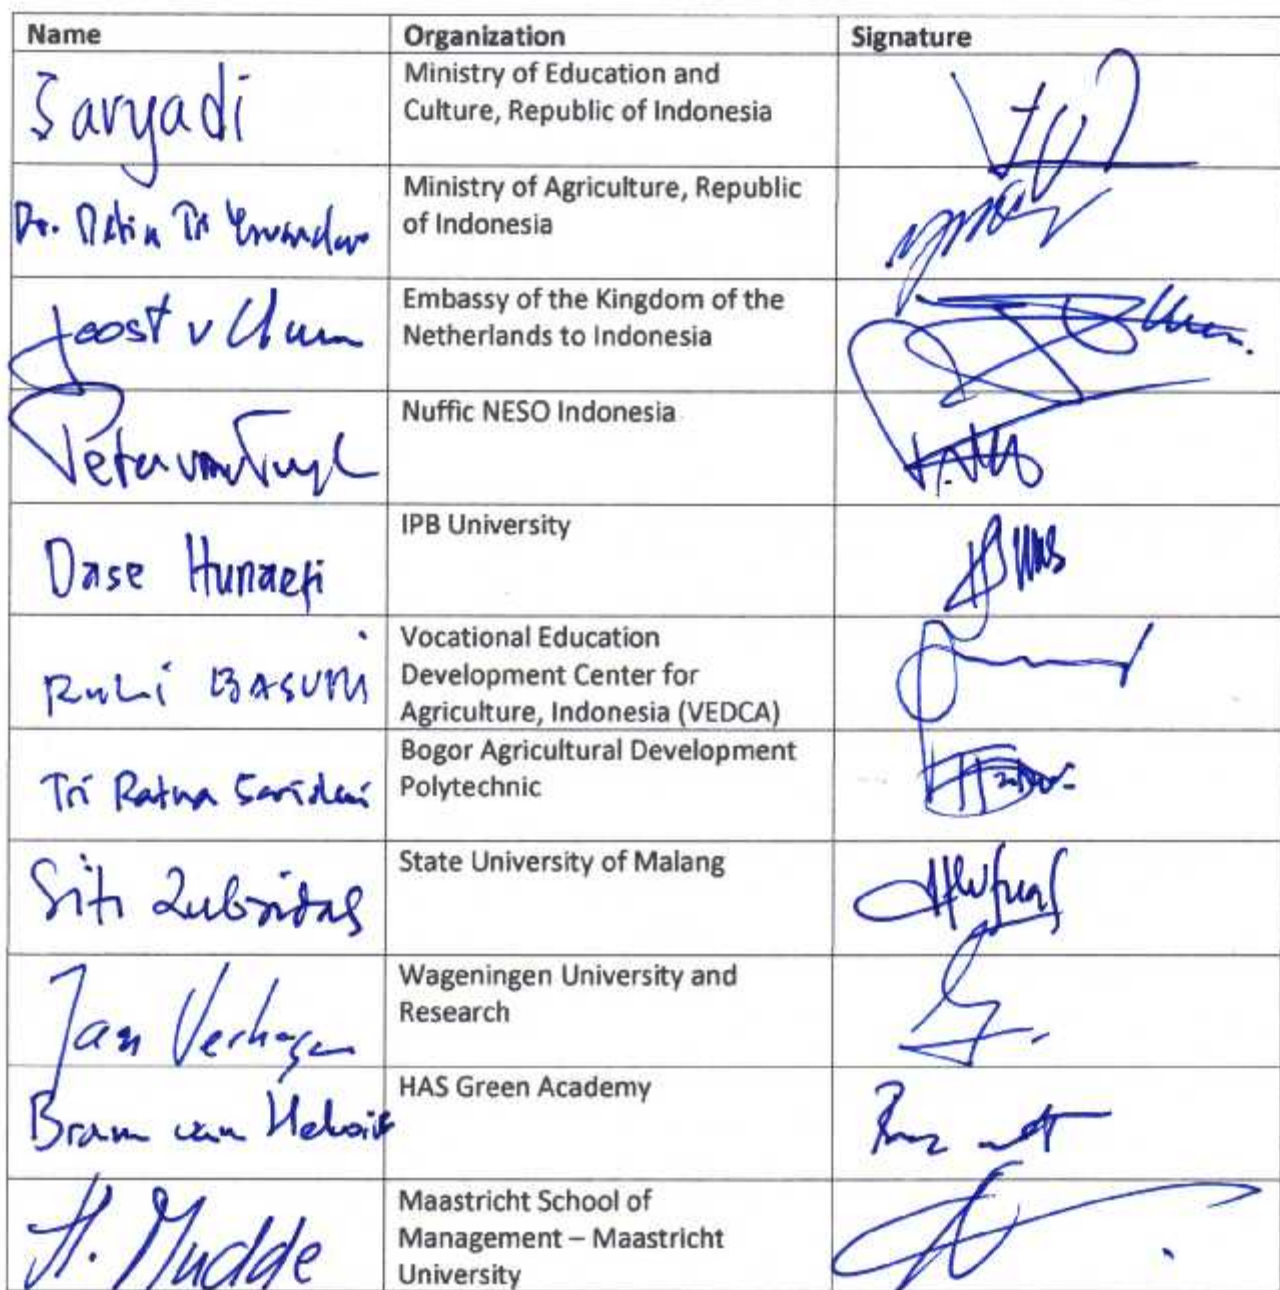 Name Organization Signature
Saryadi
Ministry of Education and
Culture, Republic of Indonesia
Dr.
Ministry of Agriculture, Republic
of Indonesia
Joost v
Embassy of the Kingdom of the
Netherlands to Indonesia
Peter van Tuijl
Nuffic NESO Indonesia
Dase Hunaefi
IPB University
BASUKI
Vocational Education
Development Center for
Agriculture, Indonesia (VEDCA)
Tri Ratna
Bogor Agricultural Development
Polytechnic
Siti Zubaidah
State University of Malang
Jan Verhagen
Wageningen University and
Research
Bram van
HAS Green Academy
H. Mudde
Maastricht School of
Management – Maastricht
University